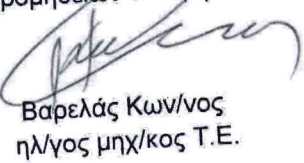 Βαρελάς Κων/νος
ηλ/γος μηχ/κος Τ.Ε.